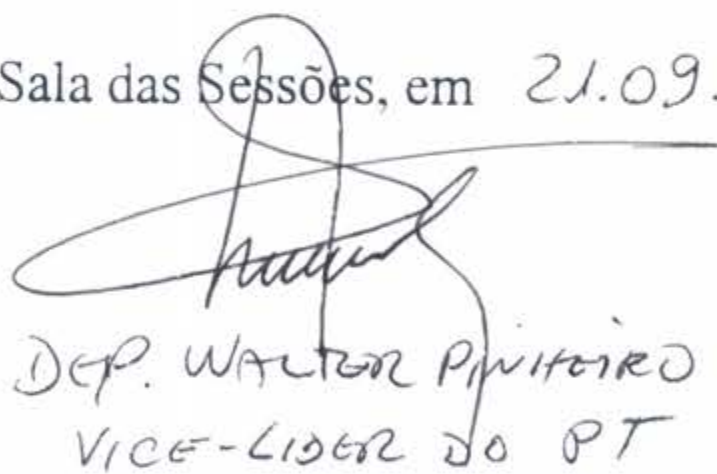 Sala das Sessões, em 21.09.
DEP. WALTER PINHEIRO
VICE-LIDER DO PT